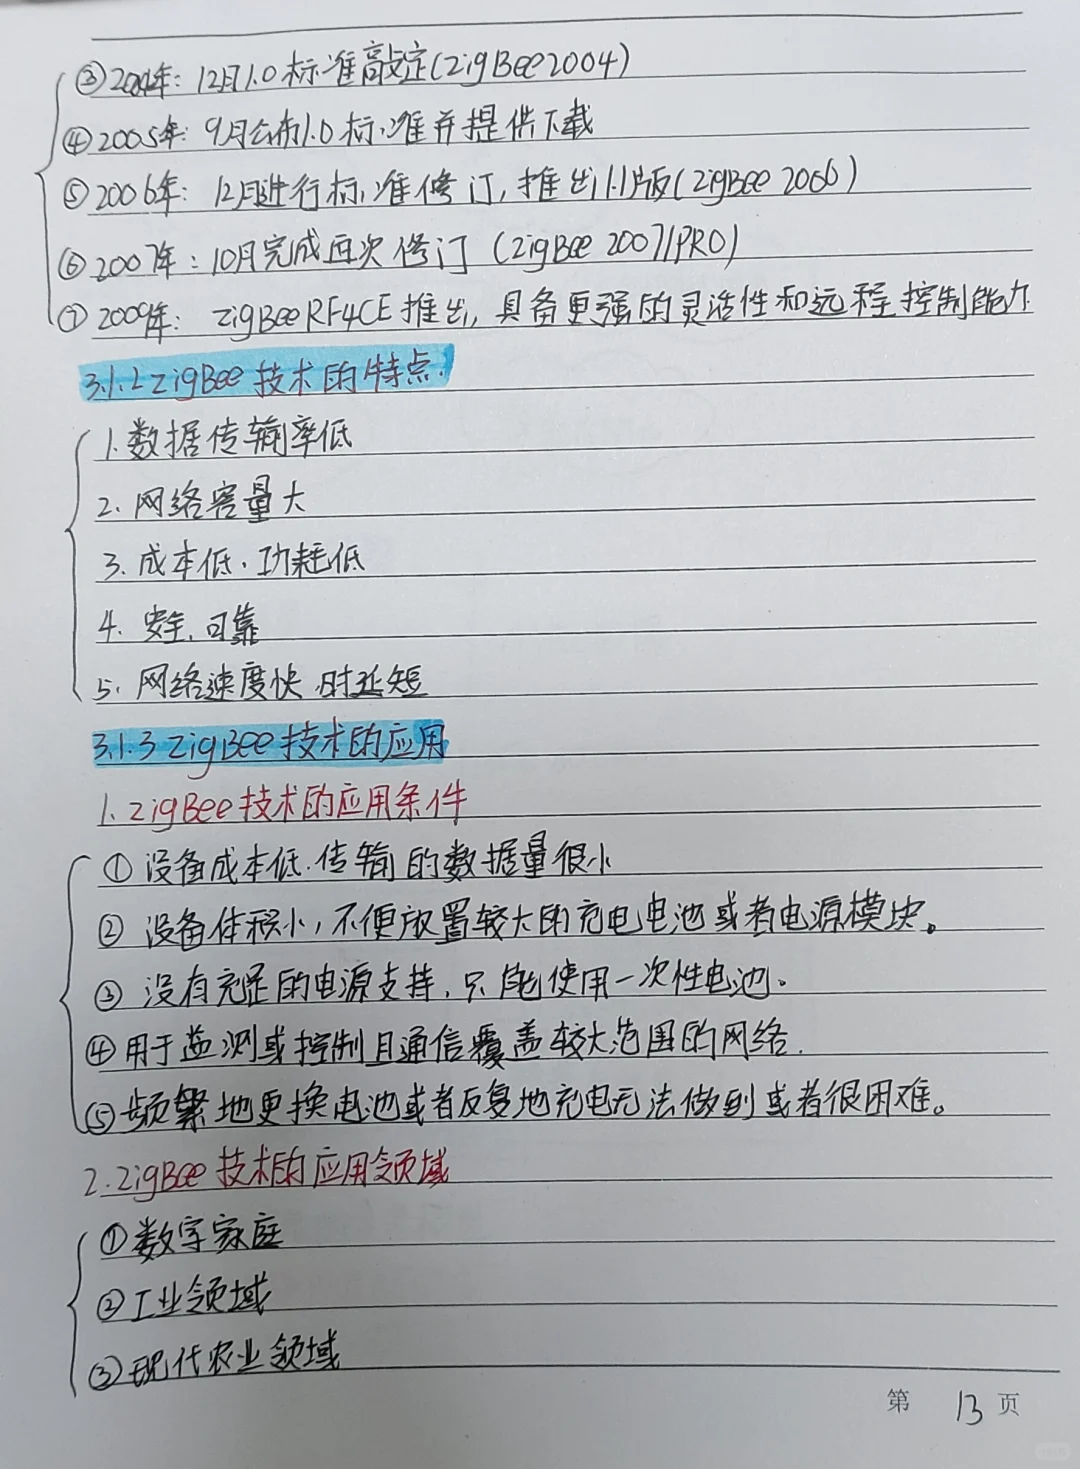 ③2004年：12月1.0标准敲定(ZigBee2004)
④2005年：9月公布1.0标准并提供下载
⑤2006年：12月进行标准修订，推出1.1版(ZigBee 2006)
⑥2007年：10月完成再次修订(ZigBee 2007/PRO)
⑦2009年：ZigBeeRF4CE推出，具备更强的灵活性和远程控制能力
3.1.2 ZigBee技术的特点.
1.数据传输率低
2.网络容量大
3.成本低.功耗低
4.安全、可靠
5.网络速度快.时延短
3.1.3 ZigBee技术的应用
1.ZigBee技术的应用条件
①设备成本低.传输的数据量很小
②设备体积小，不便放置较大的充电电池或者电源模块。
③没有充足的电源支持，只能使用一次性电池。
④用于监测或控制且通信覆盖较大范围的网络.
⑤频繁地更换电池或者反复地充电无法做到或者很困难。
2.ZigBee技术的应用领域
①数字家庭
②工业领域
③现代农业领域
第 13 页